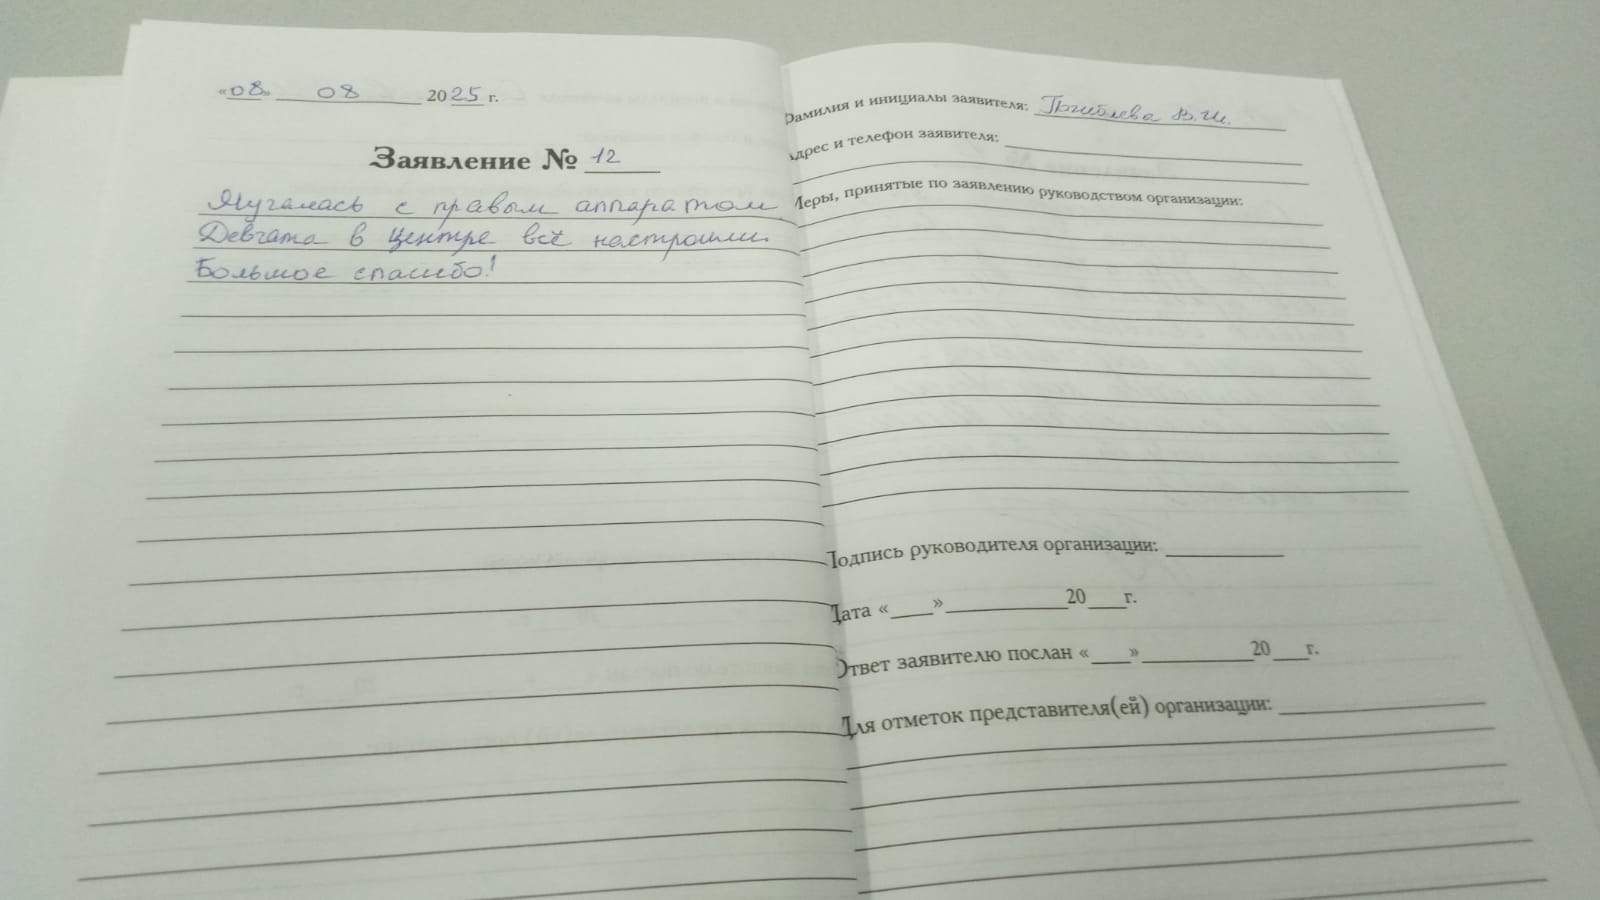 «08» 08 2025 г.
Заявление № 12
Мучалась с правым аппаратом.
Девчата в центре всё настроили.
Большое спасибо!
Фамилия и инициалы заявителя: В.И.
Адрес и телефон заявителя:
Меры, принятые по заявлению руководством организации:
Подпись руководителя организации:
Дата « » 20 г.
Ответ заявителю послан « » 20 г.
Для отметок представителя(ей) организации: